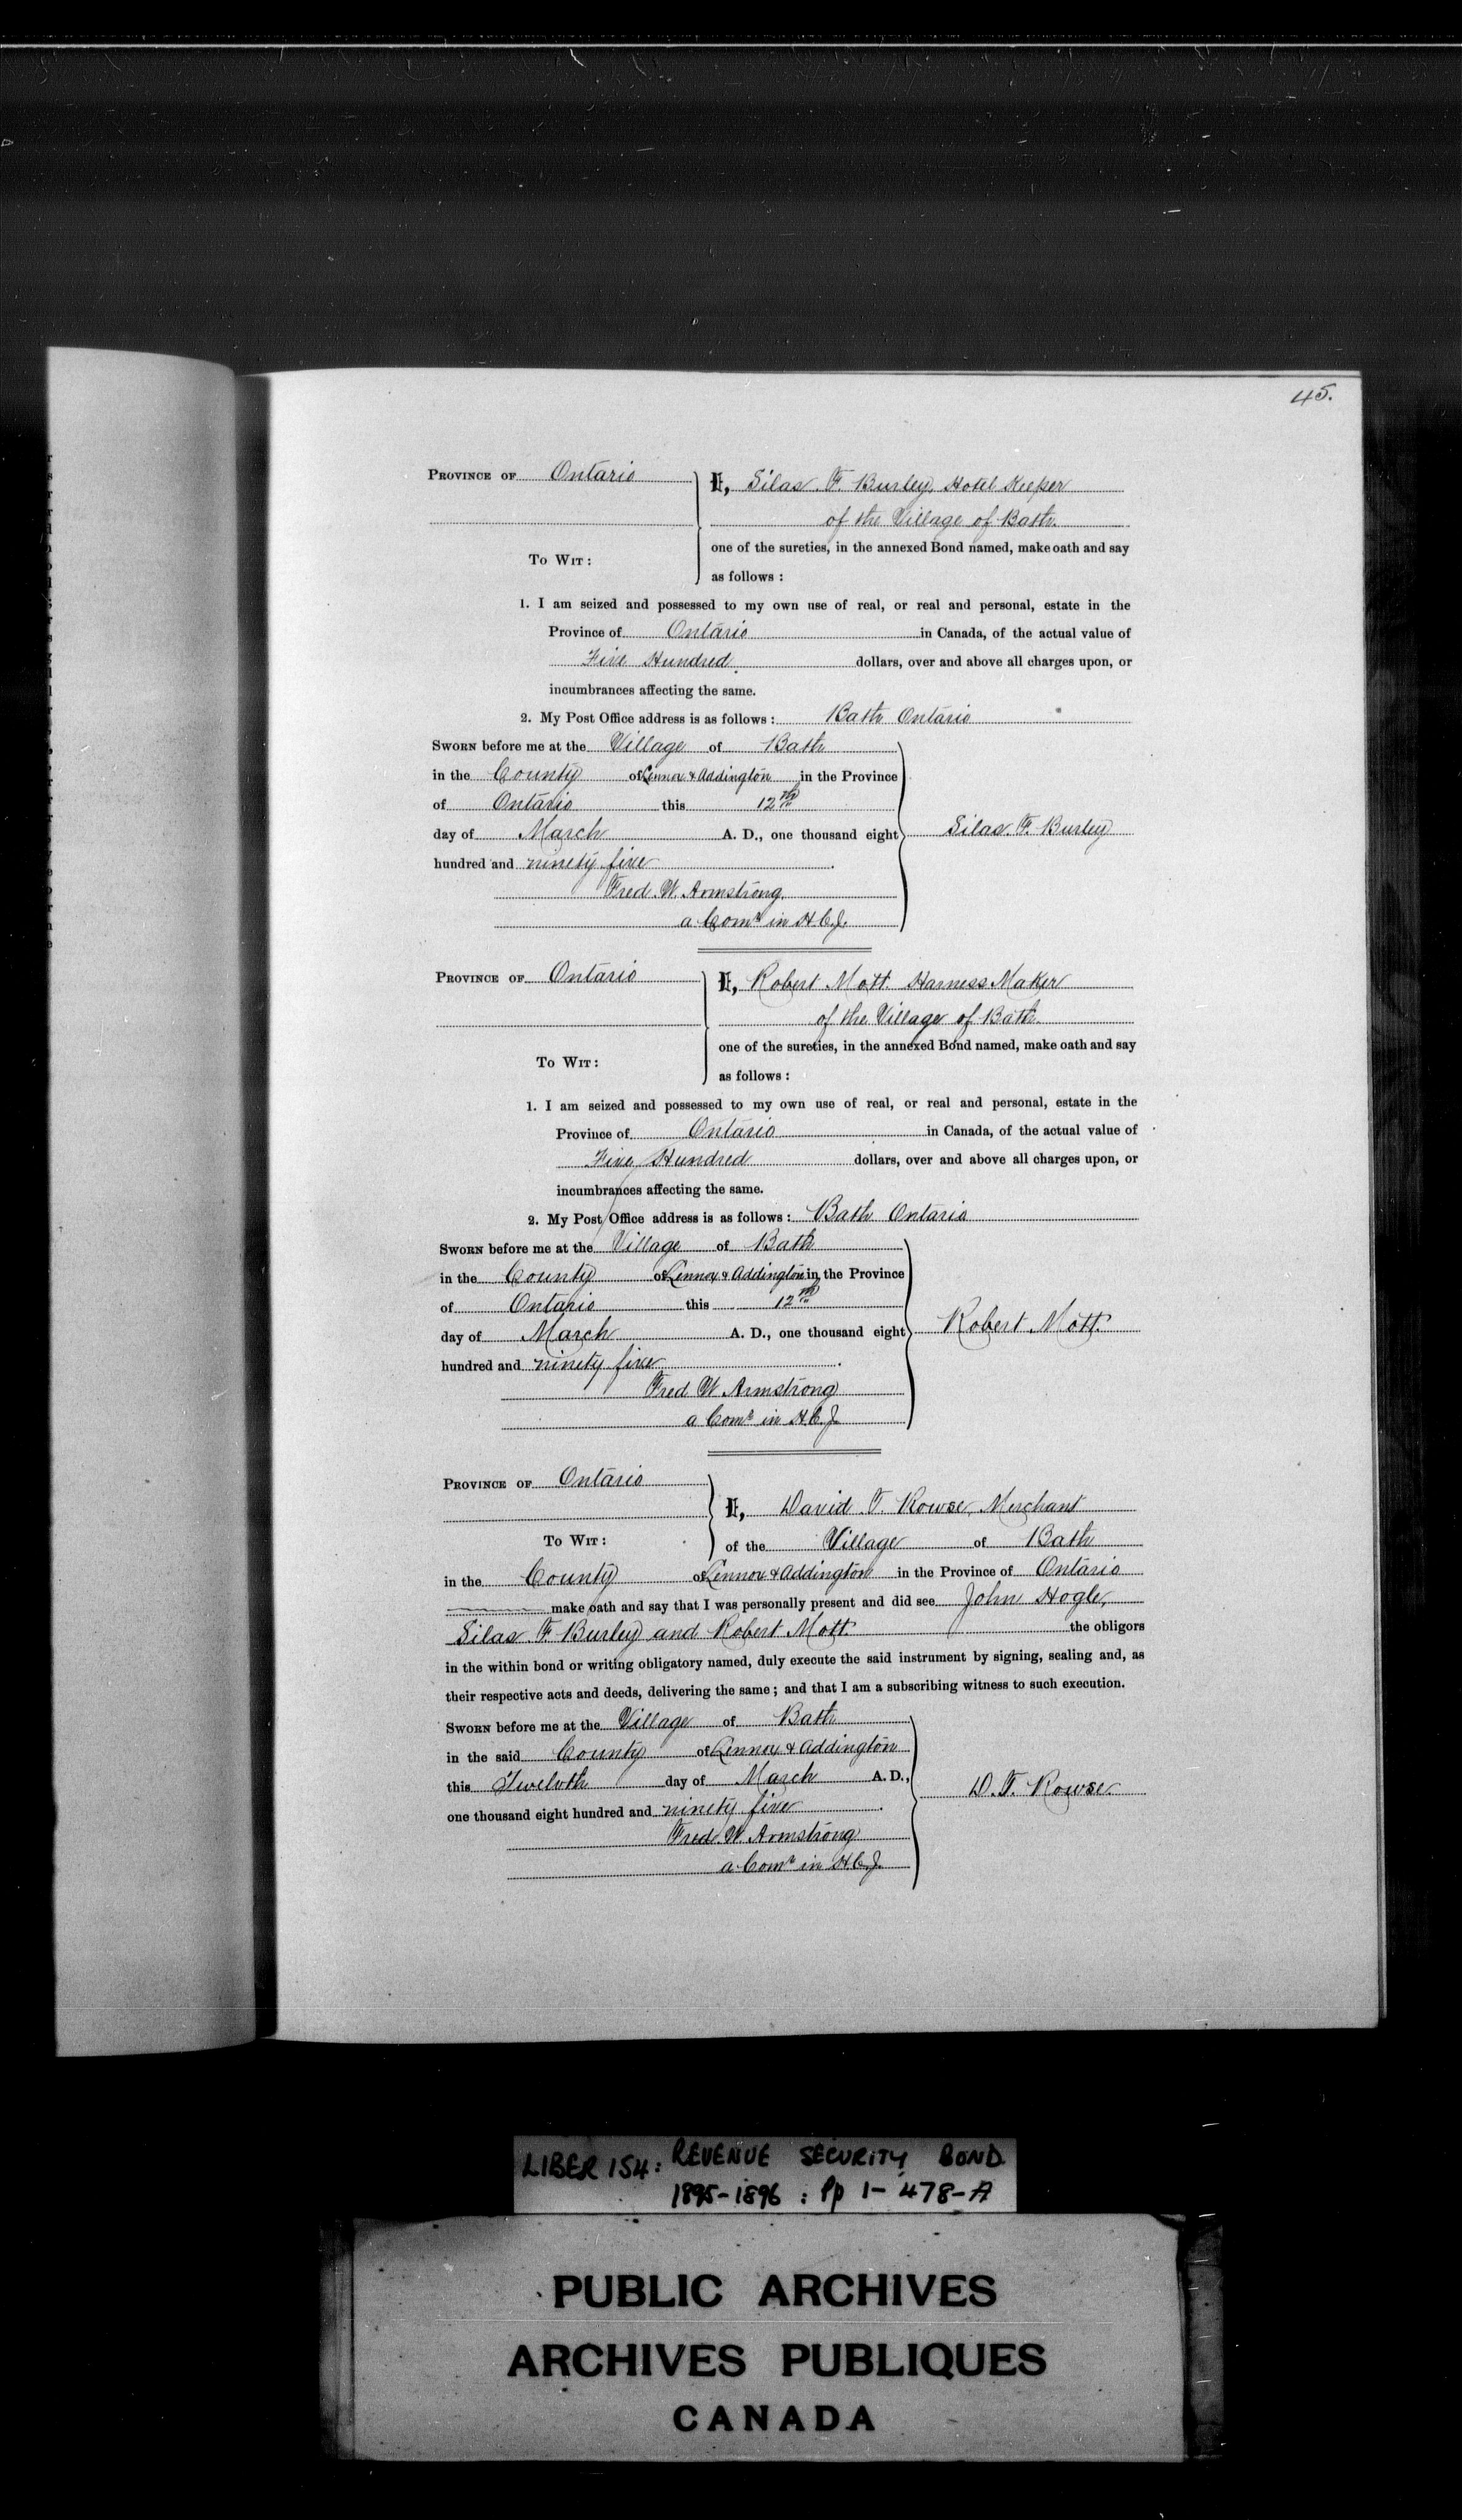 45.
PROVINCE OF Ontario
I, Silas F. Burley, Hotel Keeper
of the Village of Bath.
one of the sureties, in the annexed Bond named, make oath and say
TO WIT :
as follows :
1. I am seized and possessed to my own use of real, or real and personal, estate in the
Province of Ontario in Canada, of the actual value of
Five Hundred dollars, over and above all charges upon, or
incumbrances affecting the same.
2. My Post Office address is as follows : Bath Ontario
SWORN before me at the Village of Bath
in the County of Lennox & Addington in the Province
of Ontario this 12th
day of March A. D., one thousand eight
Silas F. Burley
hundred and ninety five
Fred. W. Armstrong.
a Comr in H.C.J.
PROVINCE OF Ontario
I, Robert Mott Harness Maker
of the Village of Bath.
one of the sureties, in the annexed Bond named, make oath and say
TO WIT :
as follows :
1. I am seized and possessed to my own use of real, or real and personal, estate in the
Province of Ontario in Canada, of the actual value of
Five Hundred dollars, over and above all charges upon, or
incumbrances affecting the same.
2. My Post Office address is as follows : Bath Ontario
SWORN before me at the Village of Bath
in the County of Lennox & Addington in the Province
of Ontario this 12th
day of March A. D., one thousand eight
Robert Mott.
hundred and ninety five
Fred W Armstrong
a Comr in H.C.J.
PROVINCE OF Ontario
I, David T. Rowse, Merchant
TO WIT :
of the Village of Bath
in the County of Lennox & Addington in the Province of Ontario
make oath and say that I was personally present and did see John Hogle,
Silas F. Burley and Robert Mott the obligors
in the within bond or writing obligatory named, duly execute the said instrument by signing, sealing and, as
their respective acts and deeds, delivering the same ; and that I am a subscribing witness to such execution.
SWORN before me at the Village of Bath
in the said County of Lennox & Addington
this Twelvth day of March A. D.,
D. T. Rowse.
one thousand eight hundred and ninety five
Fred. W. Armstrong
a Comr in H.C.J.
LIBER 154 : REVENUE SECURITY BOND
1895-1896 : Pp 1- 478-A
PUBLIC ARCHIVES
ARCHIVES PUBLIQUES
CANADA